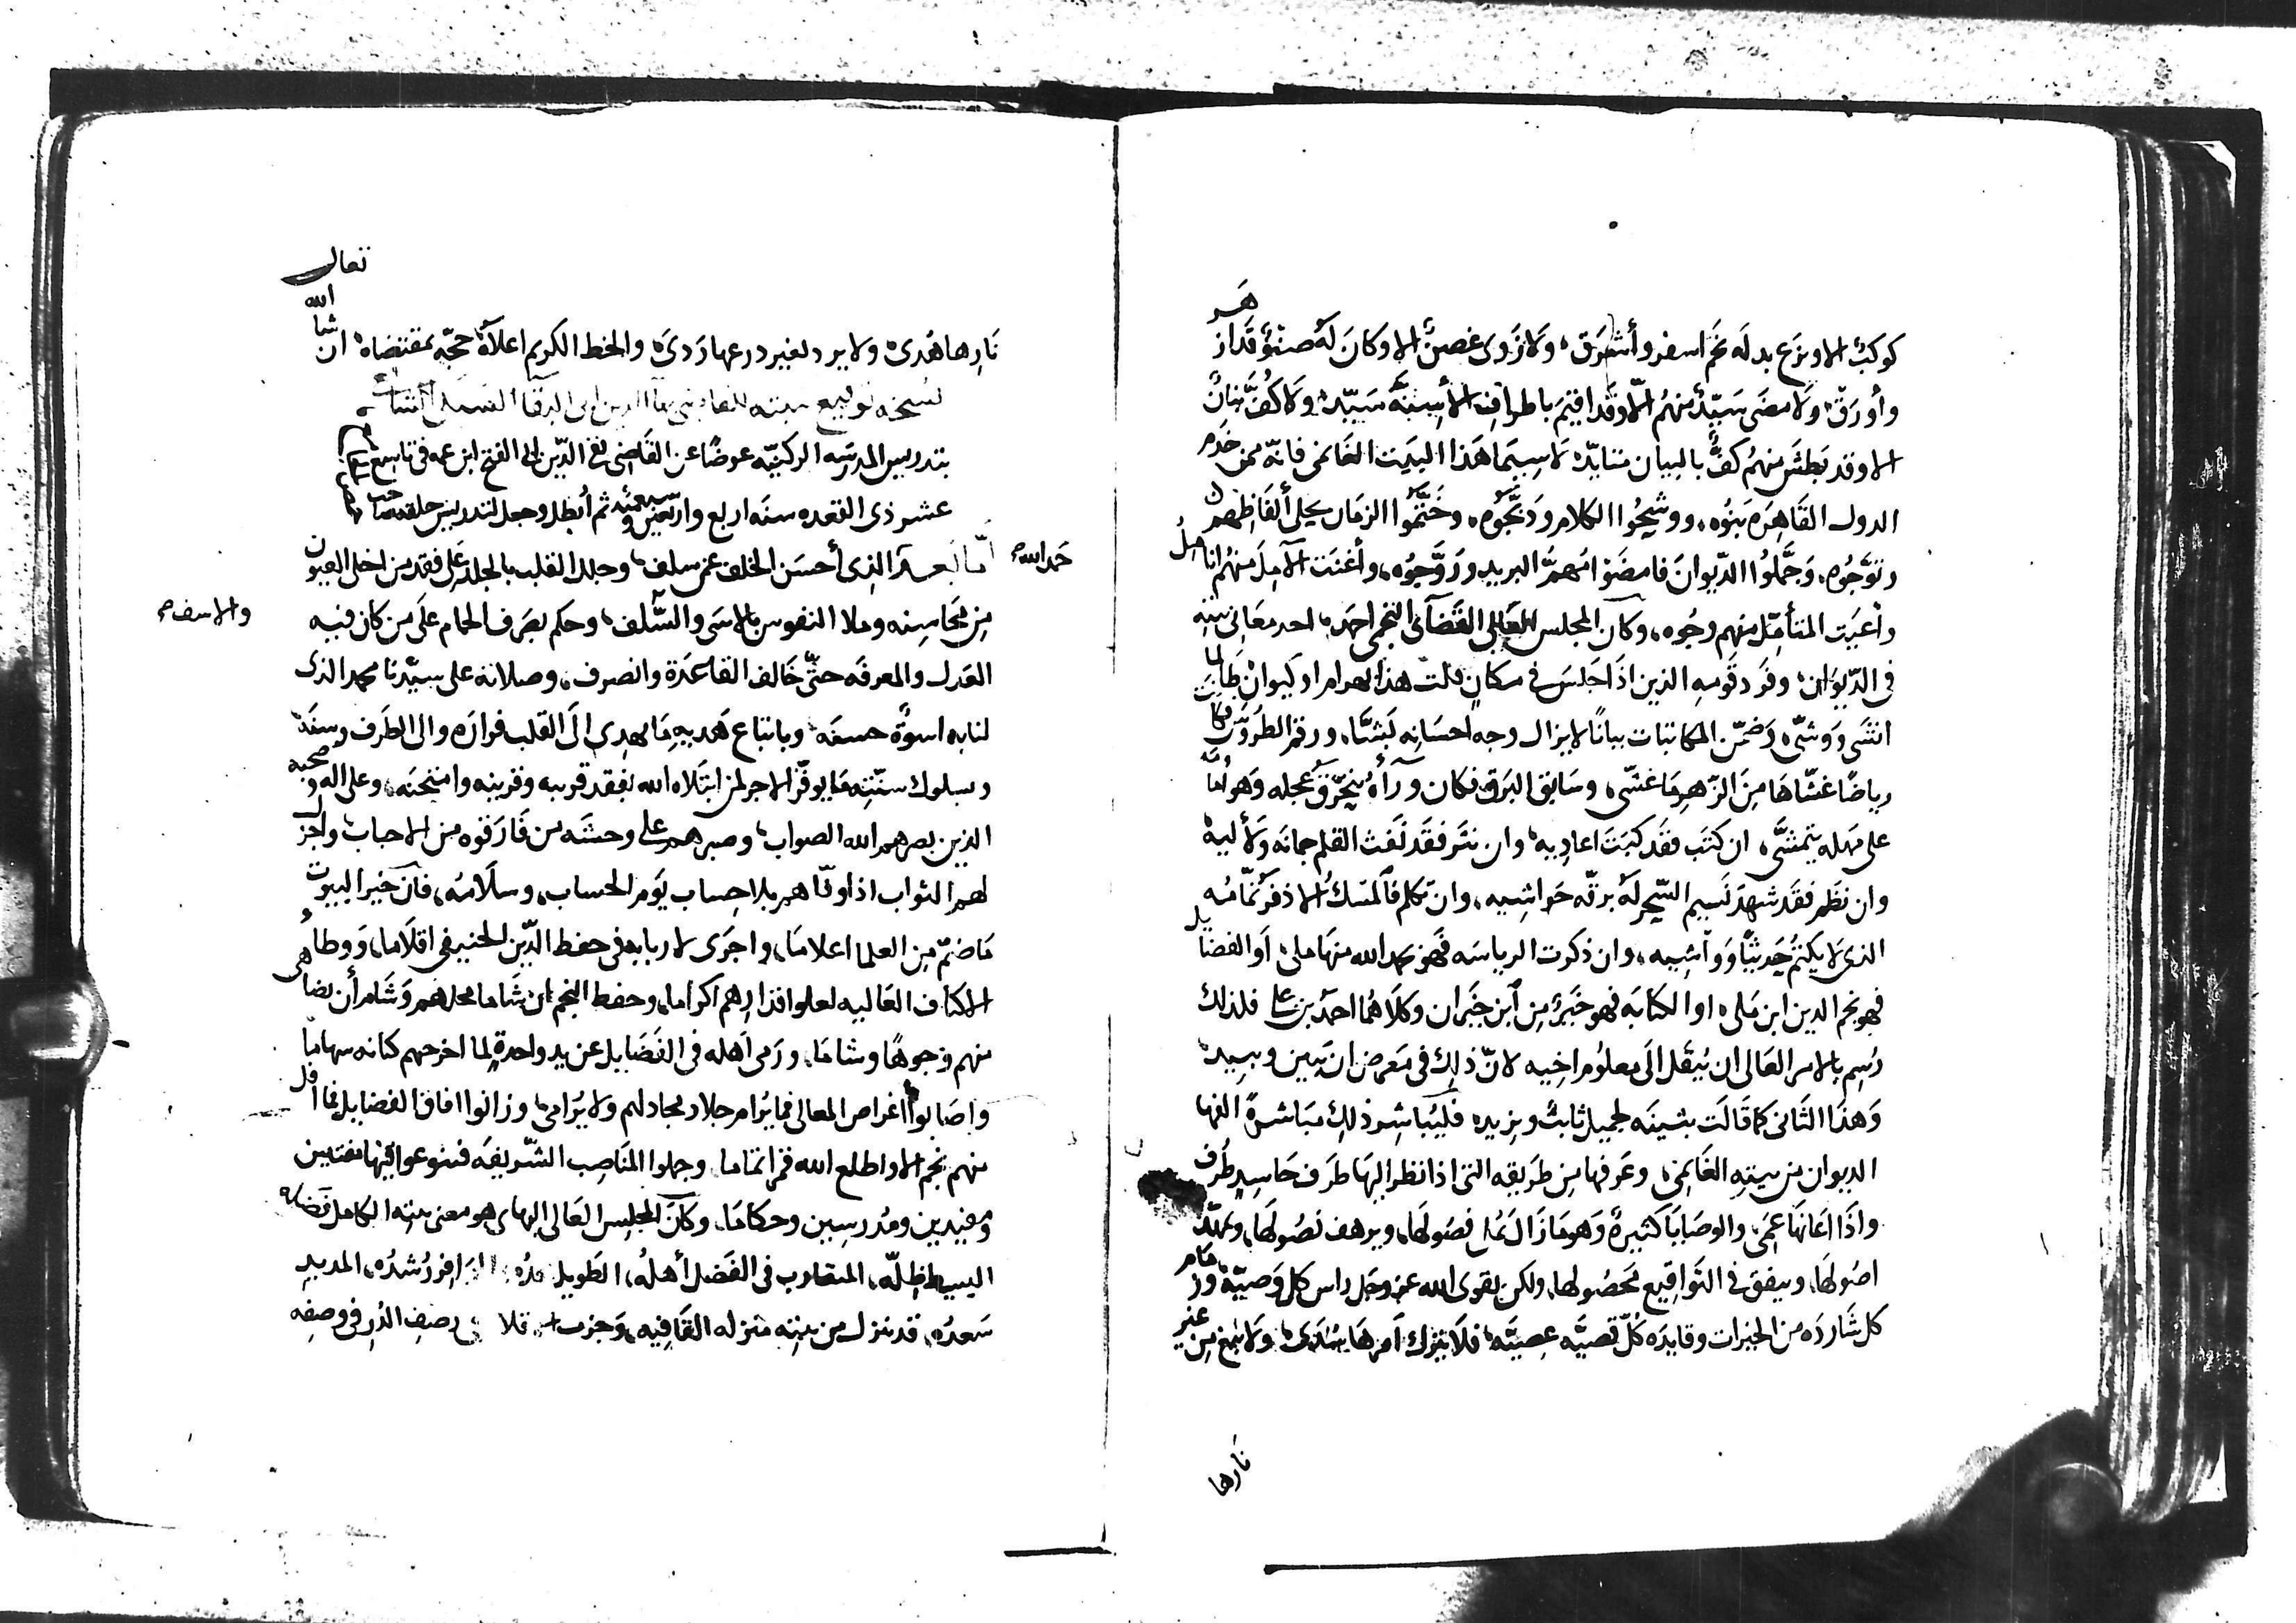 كوكبٌ الا وبزغ بدله نجم اسفر وأشرق، ولا ذوى غصنٌ الا وكان له صنوٌ قد ازهر
وأورق، ولا مضى سيّدٌ منهم الّا وقد اقيم باطراف الأسنة سيّده، ولا كُفّ بنانٌ
الا وقد بطش منهم كفٌّ بالبيان متأيّد، لا سيّما هذا البيت الغانمى فانّه ممن خدم
الدول القاهره بنوه، ووشّحُوا الكلام ودبّجُوه، وختّمُوا الزمان بحلى ألفاظهم
وتوّجُوه، وجمّلُوا الدّيوان فامضوا مُهمّ البريد وروّجُوه، وأغنت الآمل منهم انامل
وأعيَت المتأمّل منهم وجُوه، وكان المجلس العالى القضائى النجمى احمد، احد معانى بيته
فى الدّيوان، وفرد قومه الذين اذا جلس فى مكان قلت هذا بهرام او كيوان، طالما
انشى ووشّى، وضمّن المكاتبات بيانًا لا يزال وجه احسانه بَشّا، ورقم الطروس فكانت
رياضًا غشّاها من الزّهر ما غشّى، وسابق البرق فكان ورآهُ يتحرّق عجله وهو أمامه
على مهله يتمشّى، ان كتب فقد كبَتَ اعاديه، وان نثر فقد نفث القلم جمانه ولآليه
وان نظم فقد شهد نسيم السّحر له برقّه حواشيه، وان تكلم فالمسكُ الاذفر نمّامُه
الذى لا يكتم حديثًا وواشيه، وان ذكرت الرياسه فهو بحمد الله منها ملىٌ، أو الفضايل
فهو نجم الدين ابن ملى، او الكتابه فهو خيرٌ من ابن خيران وكلاهما احمد بن على فلذلك
رُسم بالامر العالى ان يُنقل الى معلُوم اخيه لانّ ذلك فى معرض ان يبين ويبيد
وهذا الثانى كما قالت بثينه لجميل ثابتٌ ويزيد، فليُباشر ذلك مباشرةً الفها
الديوان من بيته الغانمى، وعرفها من طريقه التى اذا نظر اليها طرف حاسد طُرف
واذا اعانها عمى، والوصايا كثيرةٌ وهو ما زال يُملى فصُولها، ويرهف نصُولها، ويمهّد
اصُولها، وينفق فى التواقيع محصُولها، ولكن تقوى الله عز وجل راس كل وصيّة، وزمام
كل شارده من الخيرات وقايده كُلّ قصيّه عصيّه، فلا يترك أمرها سُدى، ولا يبغ من غير
نارها
نارها هُدى، ولا يرد لغير درعها ردى، والخط الكريم اعلاهُ حجّه بمقتضاه ان
شا
الله
تعالى
نسخه توقيع بيته للقاضى بهاء الدين ابى البقا السبكى انشات
بتدريس المدرسه الركنيّه عوضًا عن القاضى تقى الدّين ابى الفتح ابن عمه فى تاسع
عشر ذى القعده سنه اربع واربعين وسبعمئه ثم أُبطل وجعل لتدريس حلقه
أمّا بعد حمد الله الذى أحسن الخلف عمن سلف، وجلد القلب بالجلد على فقد من اخلى العيون
من محاسنه وملا النفوس بالاسى والسّلف، وحكم بصرف الحمام على من كان فيه
والاسف
العدل والمعرفه حتّى خالف القاعدة وانصرف، وصلاته على سيّدنا محمد الذى
لنا به اسوةٌ حسنه، وباتباع هديه ما يهدى الى القلب قراره والى الطرف وسنه
وبسلوك سنّته ما يوفّر الاجر لمن ابتلاه الله بفقد قريبه وقرينه وامتحنه، وعلى اله وصحبه
الذين بصرهم الله الصواب، وصبرهم على وحشه من فارقوه من الاحباب، واجزل
لهم الثواب اذا وفّاهم بلا حساب يوم الحساب، وسلامُه، فان خير البيوت
ما ضمّ من العلما اعلاما، واجرى لاربابه فى حفظ الدّين الحنيفى اقلاما، ووطأ
الاكناف العاليه لعلو اقدارهم اكراما، وحفظ النجم ان شاما محلهم وشام أن يضاهى
منهم وجوهًا وشاما، ورمى اهله فى الفضايل عن يد واحدةٍ لما اخرجهم كنانه سهامًا
واصابوا أغراض المعالى فما يُرام جلاد مجادلهم ولا يُرامى، وزانوا افاق الفضايل فما افل
منهم نجم الا واطلع الله قمرا تماما، وجملوا المناصب الشّريفه فتنوعوا فيها مفتيين
ومفيدين ومدرسين وحكاما، وكان المجلس العالى البهاى هو معنى بيته الكامل فضله
البسيط ظلّه، المتقارب فى الفضل أهلهُ، الطويل مدُه، الوافر رُشدُه، المديد
سعدُه، قد نزل من بيته منزله القافيه، وجرت فلا رصف الدر فى وصفه